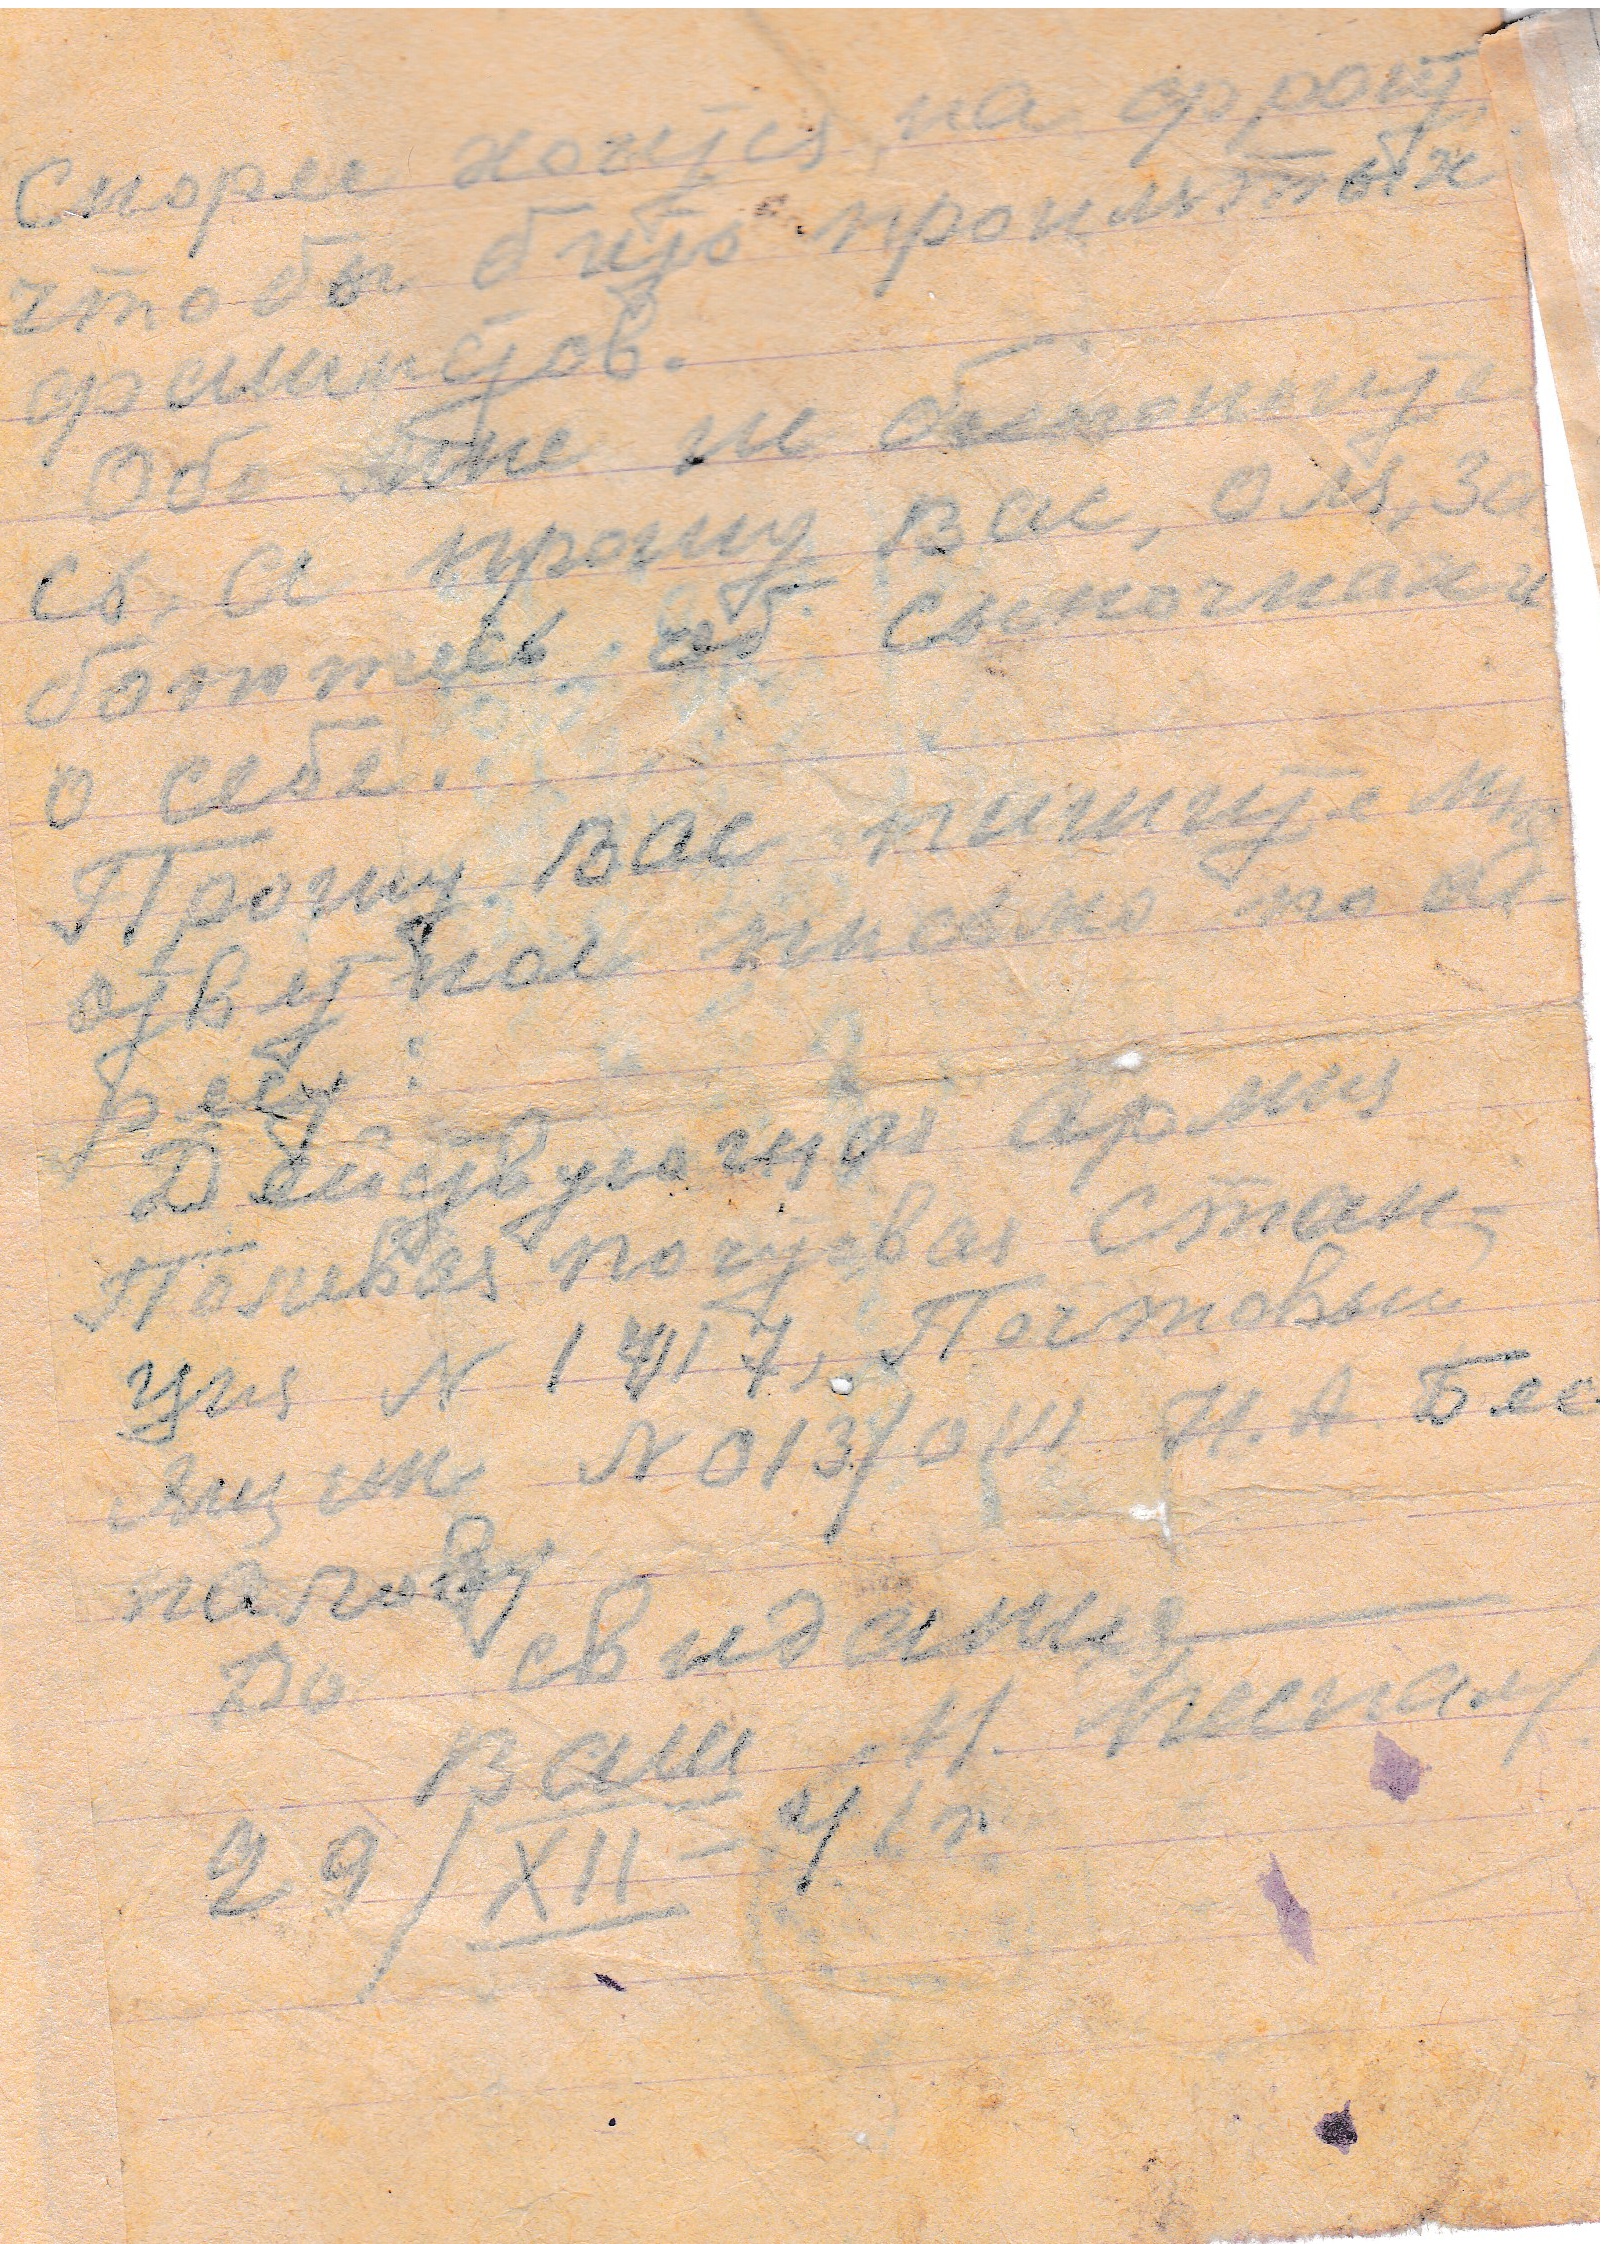 Скорее хочется на фронт,
чтобы бить проклятых
фашистов.
Обо мне не беспокойте
сь, а прошу Вас, Оля, за
ботитесь об сыночках и
о себе.
Прошу Вас пишите мне
ответное письмо по ад-
ресу:
Действующая армия
Полевая почтовая стан-
ция N 1417, Почтовый
Ящик N 013/ Н. А Бес
палову
До свидания
Ваш Н. Беспал
29/XII-41г.